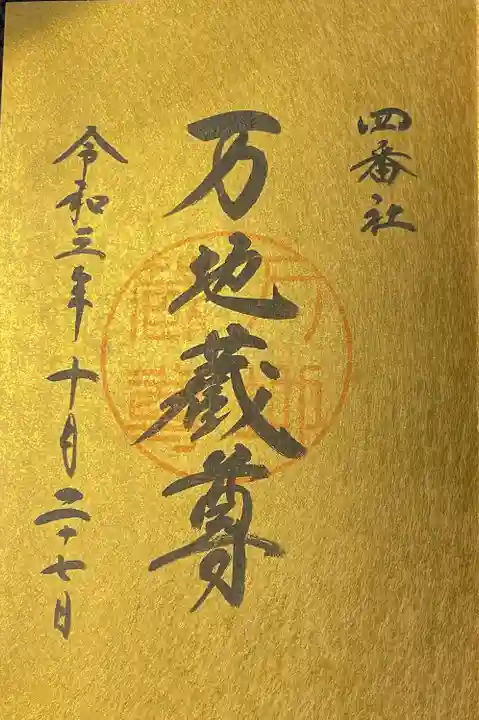 四番社
万地蔵尊
令和三年十月二十七日